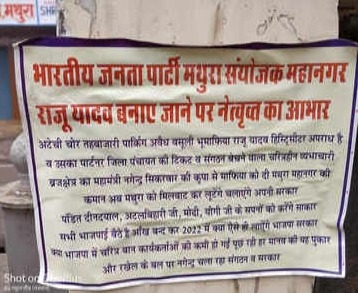 मथुरा
भारतीय जनता पार्टी मथुरा संयोजक महानगर
राजू यादव बनाए जाने पर नेत्वृत्त का आभार
अटेची चोर तहबाजारी पार्किंग अवैध वसूली भूमाफिया राजू यादव हिस्ट्रिमीटर अपराध है
व उसका पार्टनर जिला पंचायत की टिकट व संगठन बेचने वाला चरित्रहीन व्यभाचारी
ब्रजक्षेत्र का महामंत्री नगेन्द्र सिकरवार की कृपा से माफिया को दी मथुरा महानगर की
कमान अब मथुरा को मिलवाट कर लूटेंगे चलाएंगे अपनी सरकार
पंडित दीनदयाल, अटलबिहारी जी, मोदी, योगी जी के सपनों को करेंगे साकार
सभी भाजपाई बैठे है आँख बन्द कर 2022 में क्या ऐसे ही लाएंगे भाजपा सरकार
क्या भाजपा में चरित्र वान कार्यकर्ताओं की कमी हो गई पूछ रही हर मानव की यह पुकार
और रखैल के बल पर नगेन्द्र चला रहा संगठन व सरकार
Shot on